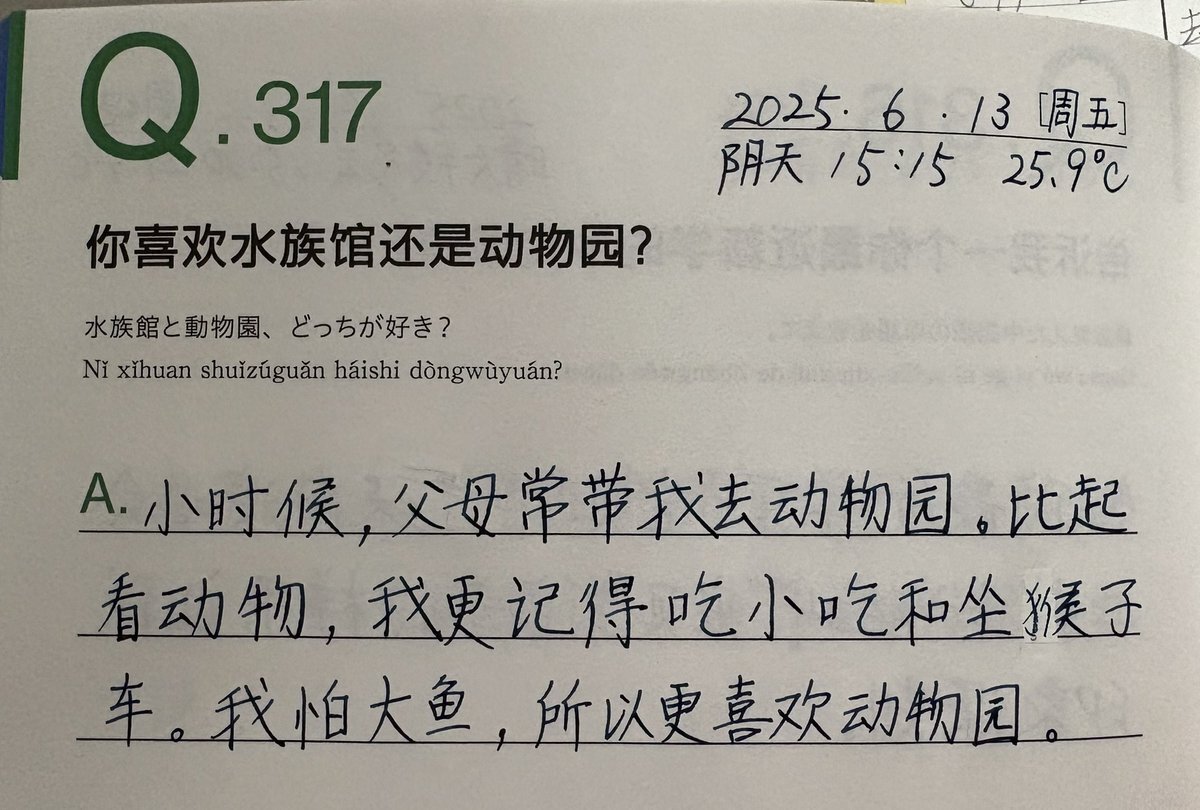 Q.317
2025.6.13 [周五]
阴天 15:15 25.9℃
你喜欢水族馆还是动物园?
水族館と動物園、どっちが好き？
Nǐ xǐhuan shuǐzúguǎn háishi dòngwùyuán?
A. 小时候,父母常带我去动物园。比起
看动物,我更记得吃小吃和坐猴子
车。我怕大鱼,所以更喜欢动物园。